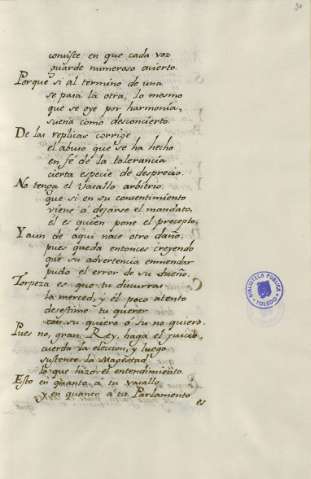 consiste en que cada voz
guarde numeroso acierto.
Porque si al termino de una
se pasa la otra, lo mismo
que se oye por harmonia,
suena como desconcierto.
De las replicas corrige
el abuso que se ha hecho
en fé de la tolerancia
cierta especie de desprecio.
No tenga el Vasallo arbitrio,
que si en su consentimiento
viene á dejarse el mandato,
él es quien pone el precepto.
Y aun de aqui nace otro daño;
pues queda entonces creyendo
que su advertencia enmendar
pudo el error de su dueño.
Torpeza es que tu
la merced, y él poco atento
desestime tu querer
con su quiero ó su no quiero.
Pues no, gran Rey, haga el juicio
cuerdo la eleccion, y luego
sustente la Magestad
lo que hizo el entendimiento.
Esto en quanto á tu vasallo
y en quanto á tu Parlamento
es
BIBLIOTECA PUBLICA
TOLEDO